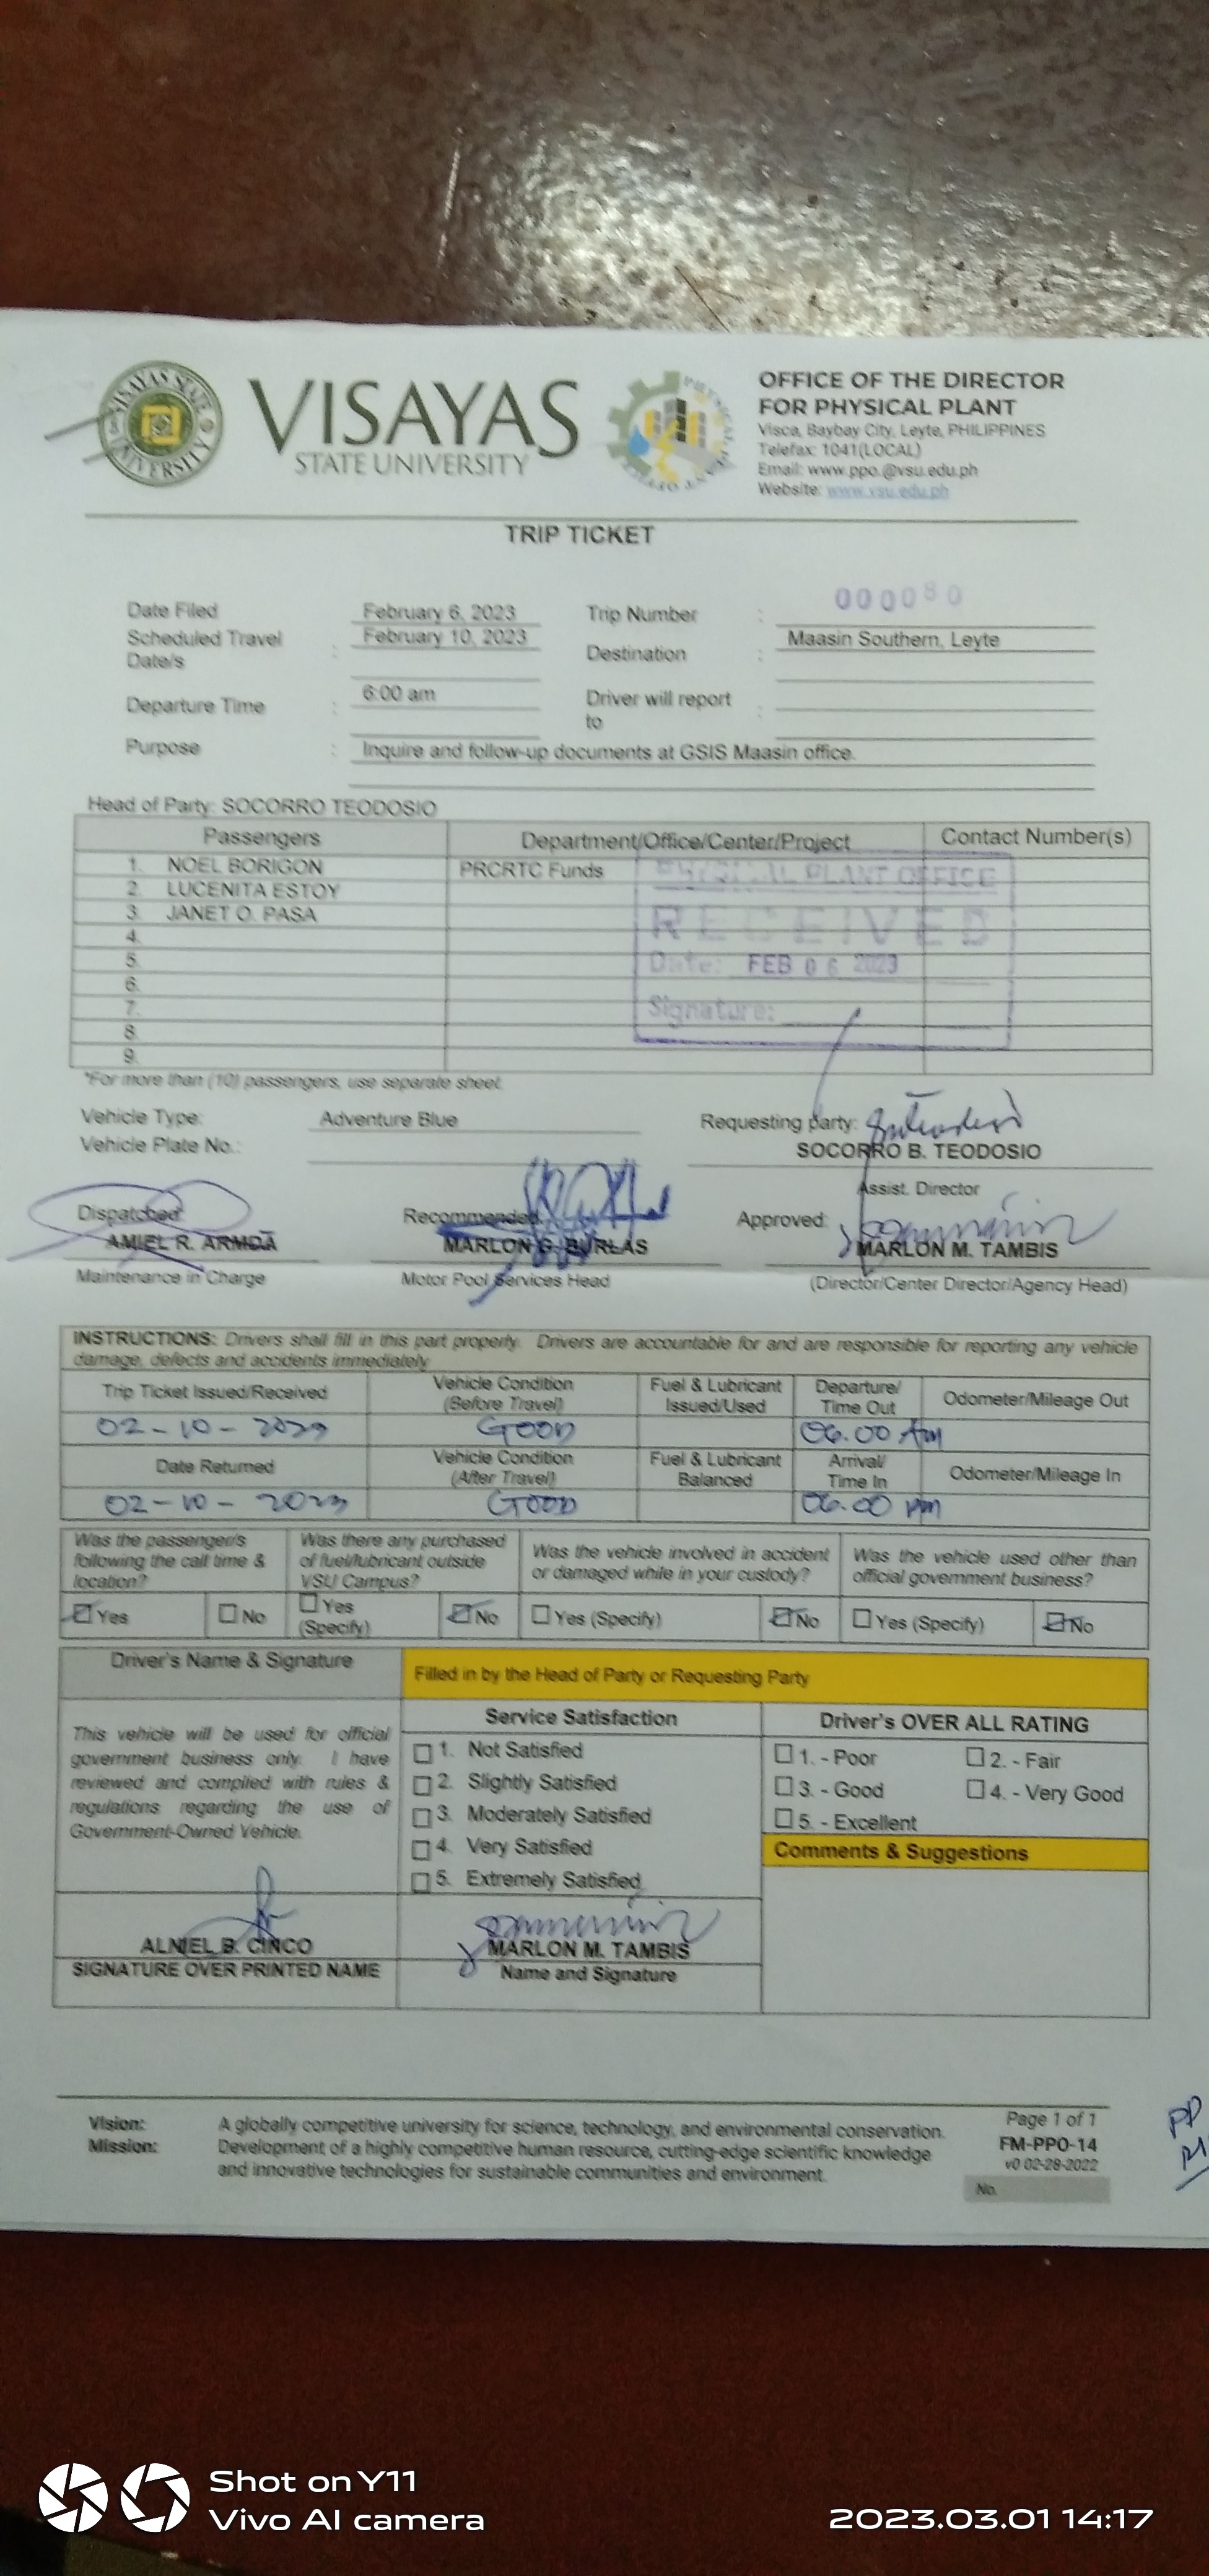 VISAYAS STATE UNIVERSITY
VISAYAS
STATE UNIVERSITY
OFFICE OF THE DIRECTOR
FOR PHYSICAL PLANT
Visca, Baybay City, Leyte, PHILIPPINES
Telefax: 1041(LOCAL)
Email: www.ppo.@vsu.edu.ph
Website: www.vsu.edu.ph
TRIP TICKET
Date Filed February 6, 2023 Trip Number : 000080
Scheduled Travel Date/s : February 10, 2023 Destination : Maasin Southern, Leyte
Departure Time : 6:00 am Driver will report to :
Purpose : Inquire and follow-up documents at GSIS Maasin office.
Head of Party: SOCORRO TEODOSIO
Passengers Department/Office/Center/Project Contact Number(s)
1. NOEL BORIGON PRCRTC Funds
2. LUCENITA ESTOY
3. JANET O. PASA
4.
5.
6.
7.
8.
9.
PHYSICAL PLANT OFFICE
RECEIVED
Date: FEB 06 2023
Signature:
*For more than (10) passengers, use separate sheet.
Vehicle Type: Adventure Blue Requesting party:
Vehicle Plate No.: SOCORRO B. TEODOSIO
Assist. Director
Dispatched: Recommended: Approved:
AMIEL R. ARMDA MARLON G. BURLAS MARLON M. TAMBIS
Maintenance in Charge Motor Pool Services Head (Director/Center Director/Agency Head)
INSTRUCTIONS: Drivers shall fill in this part properly. Drivers are accountable for and are responsible for reporting any vehicle
damage, defects and accidents immediately
Trip Ticket Issued/Received Vehicle Condition (Before Travel) Fuel & Lubricant Issued/Used Departure/ Time Out Odometer/Mileage Out
02-10-2023 GOOD 06:00 Am
Date Returned Vehicle Condition (After Travel) Fuel & Lubricant Balanced Arrival/ Time In Odometer/Mileage In
02-10-2023 GOOD 06:00 pm
Was the passenger/s following the call time & location? Was there any purchased of fuel/lubricant outside VSU Campus? Was the vehicle involved in accident or damaged while in your custody? Was the vehicle used other than official government business?
Yes No Yes (Specify) No Yes (Specify) No Yes (Specify) No
Driver's Name & Signature Filled in by the Head of Party or Requesting Party
This vehicle will be used for official
government business only. I have
reviewed and complied with rules &
regulations regarding the use of
Government-Owned Vehicle.
Service Satisfaction
1. Not Satisfied
2. Slightly Satisfied
3. Moderately Satisfied
4. Very Satisfied
5. Extremely Satisfied
Driver's OVER ALL RATING
1. - Poor 2. - Fair
3. - Good 4. - Very Good
5. - Excellent
Comments & Suggestions
ALNIEL B. CINCO MARLON M. TAMBIS
SIGNATURE OVER PRINTED NAME Name and Signature
Vision: A globally competitive university for science, technology, and environmental conservation.
Mission: Development of a highly competitive human resource, cutting-edge scientific knowledge
and innovative technologies for sustainable communities and environment.
Page 1 of 1
FM-PPO-14
v0 02-28-2022
No.
Shot on Y11
Vivo AI camera
2023.03.01 14:17